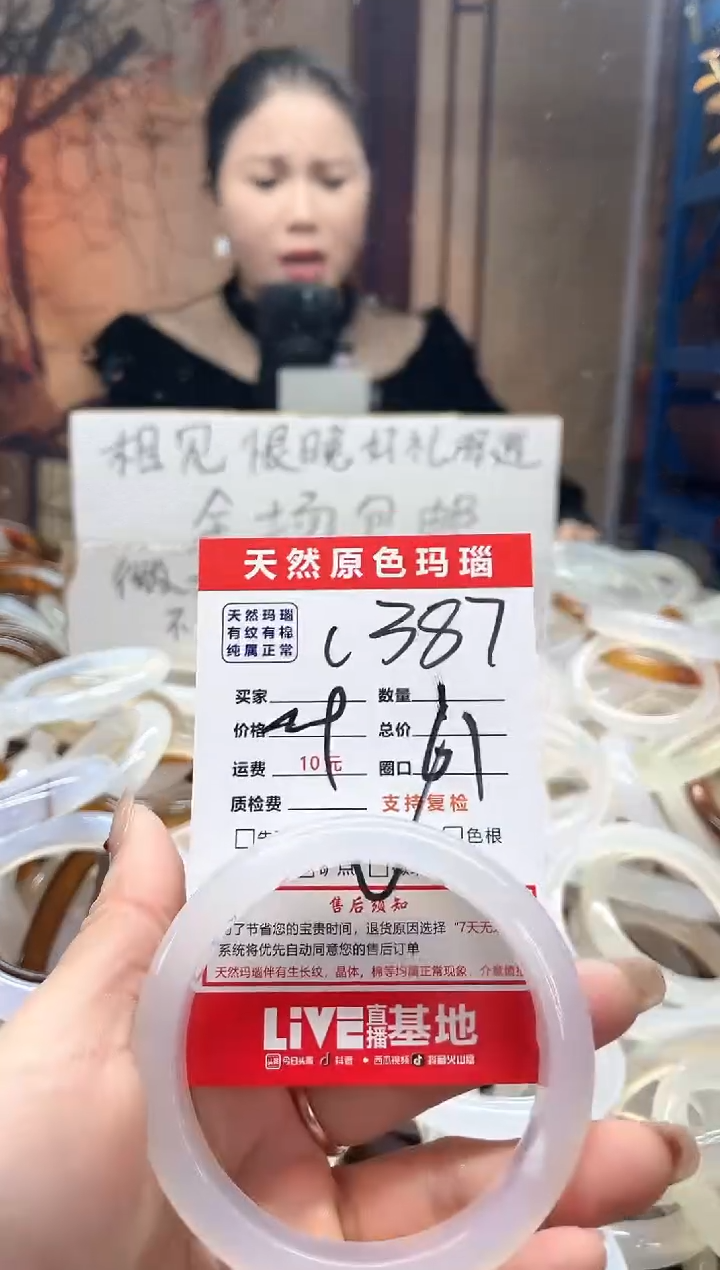 相见恨晚好礼相送
全场包邮
微
不
天然原色玛瑙
天然玛瑙
有纹有棉
纯属正常
387
买家 数量
价格 总价
运费 10元 圈口 61
质检费 支持复检
色根
矿点
售后须知
了节省您的宝贵时间，退货原因选择“7天无
系统将优先自动同意您的售后订单
天然玛瑙伴有生长纹，晶体，棉等均属正常现象，介意慎拍
LiVE直播基地
头条 今日头条 抖音 西瓜视频 抖音火山版